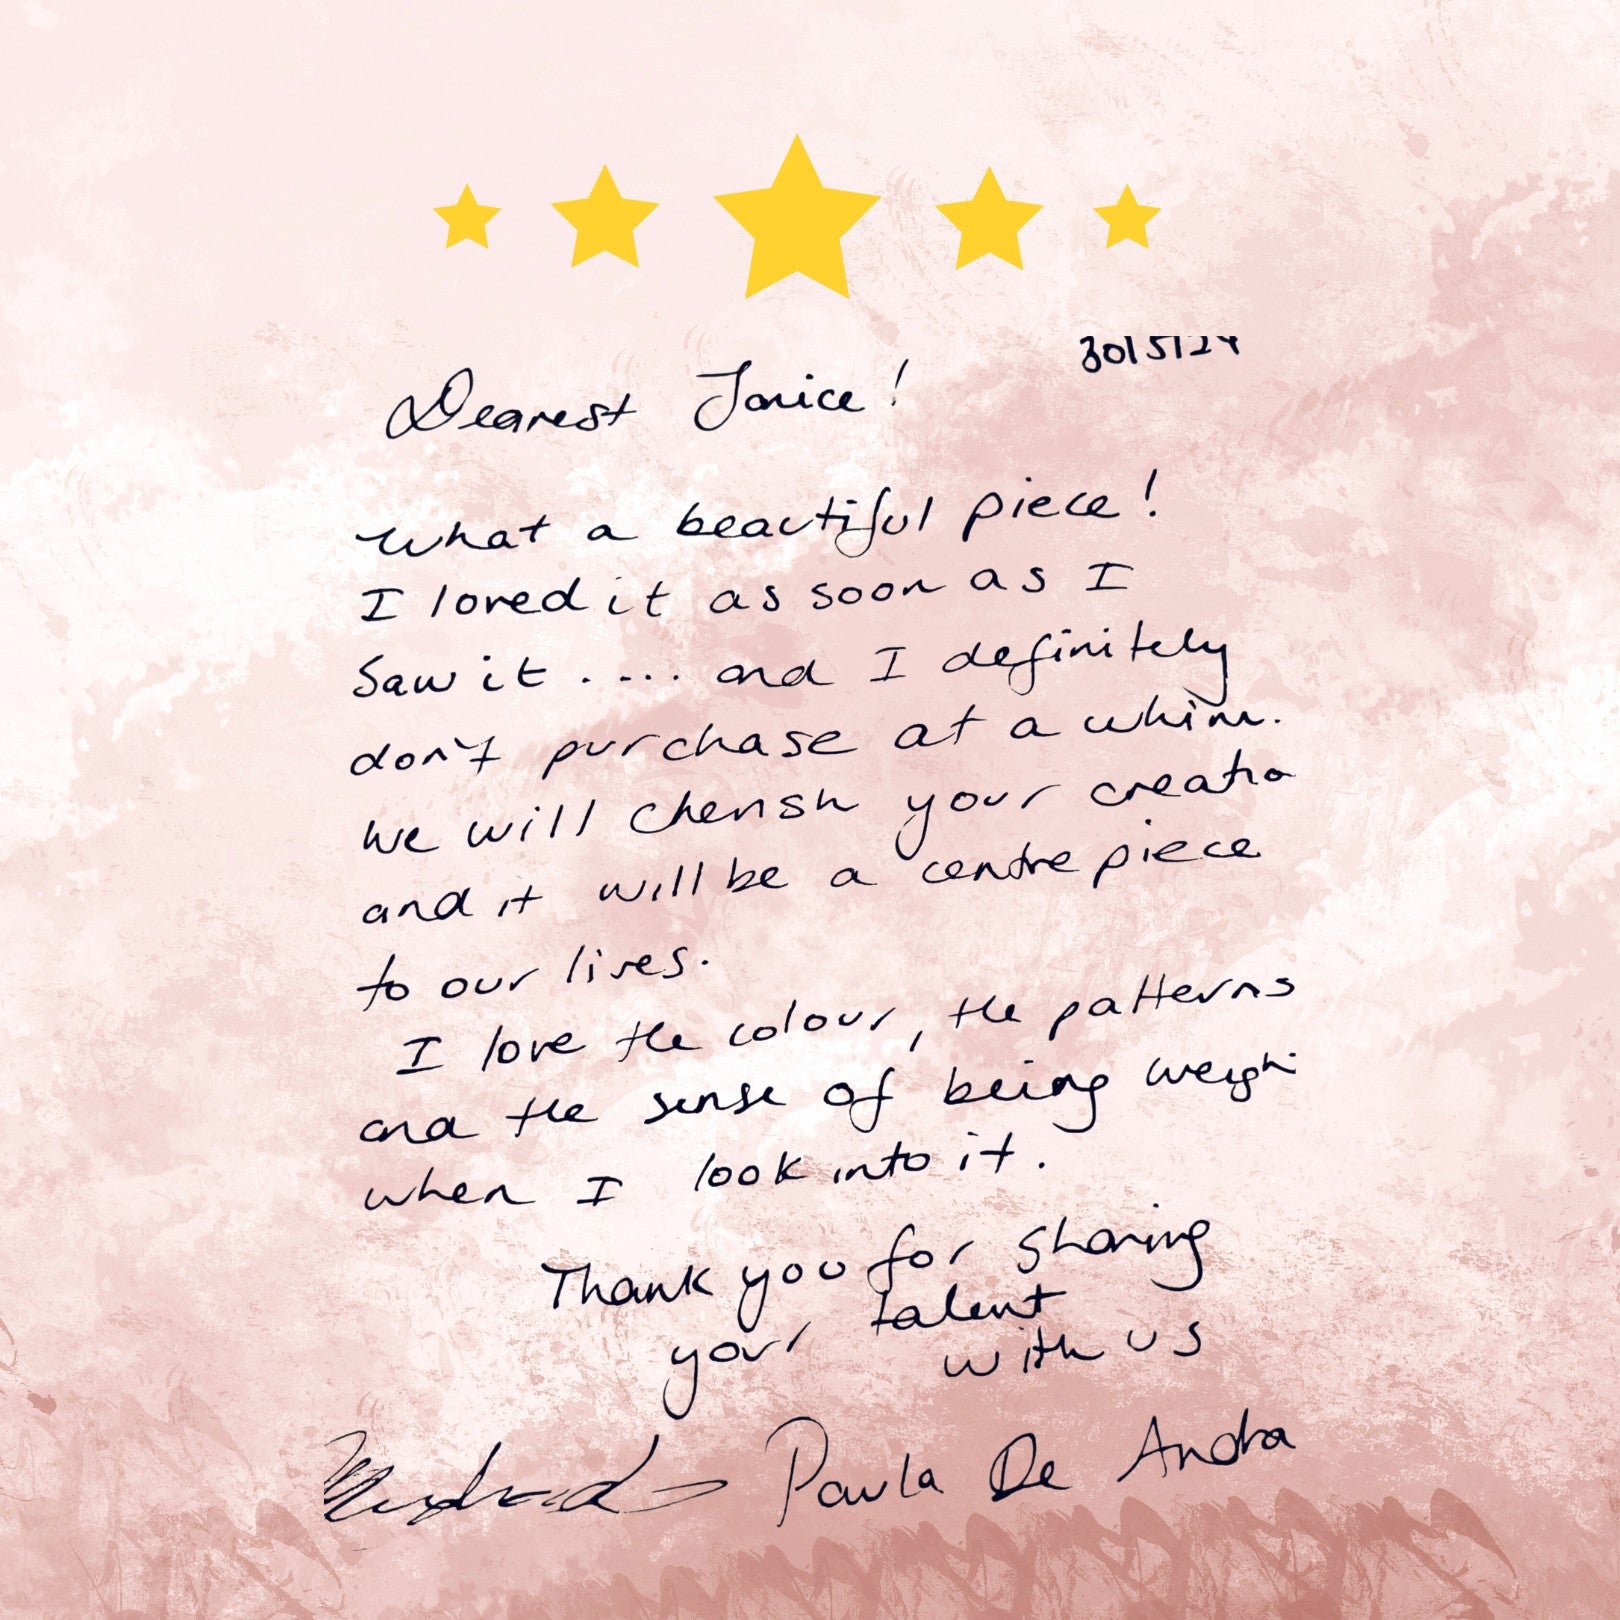 30/5/24
Dearest Janice!
What a beautiful piece!
I loved it as soon as I
saw it ..... and I definitely
don't purchase at a whim.
We will cherish your creatio
and it will be a centre piece
to our lives.
I love the colour, the patterns
and the sense of being weigh
when I look into it.
Thank you for sharing
your talent
with us
Paula De Andra